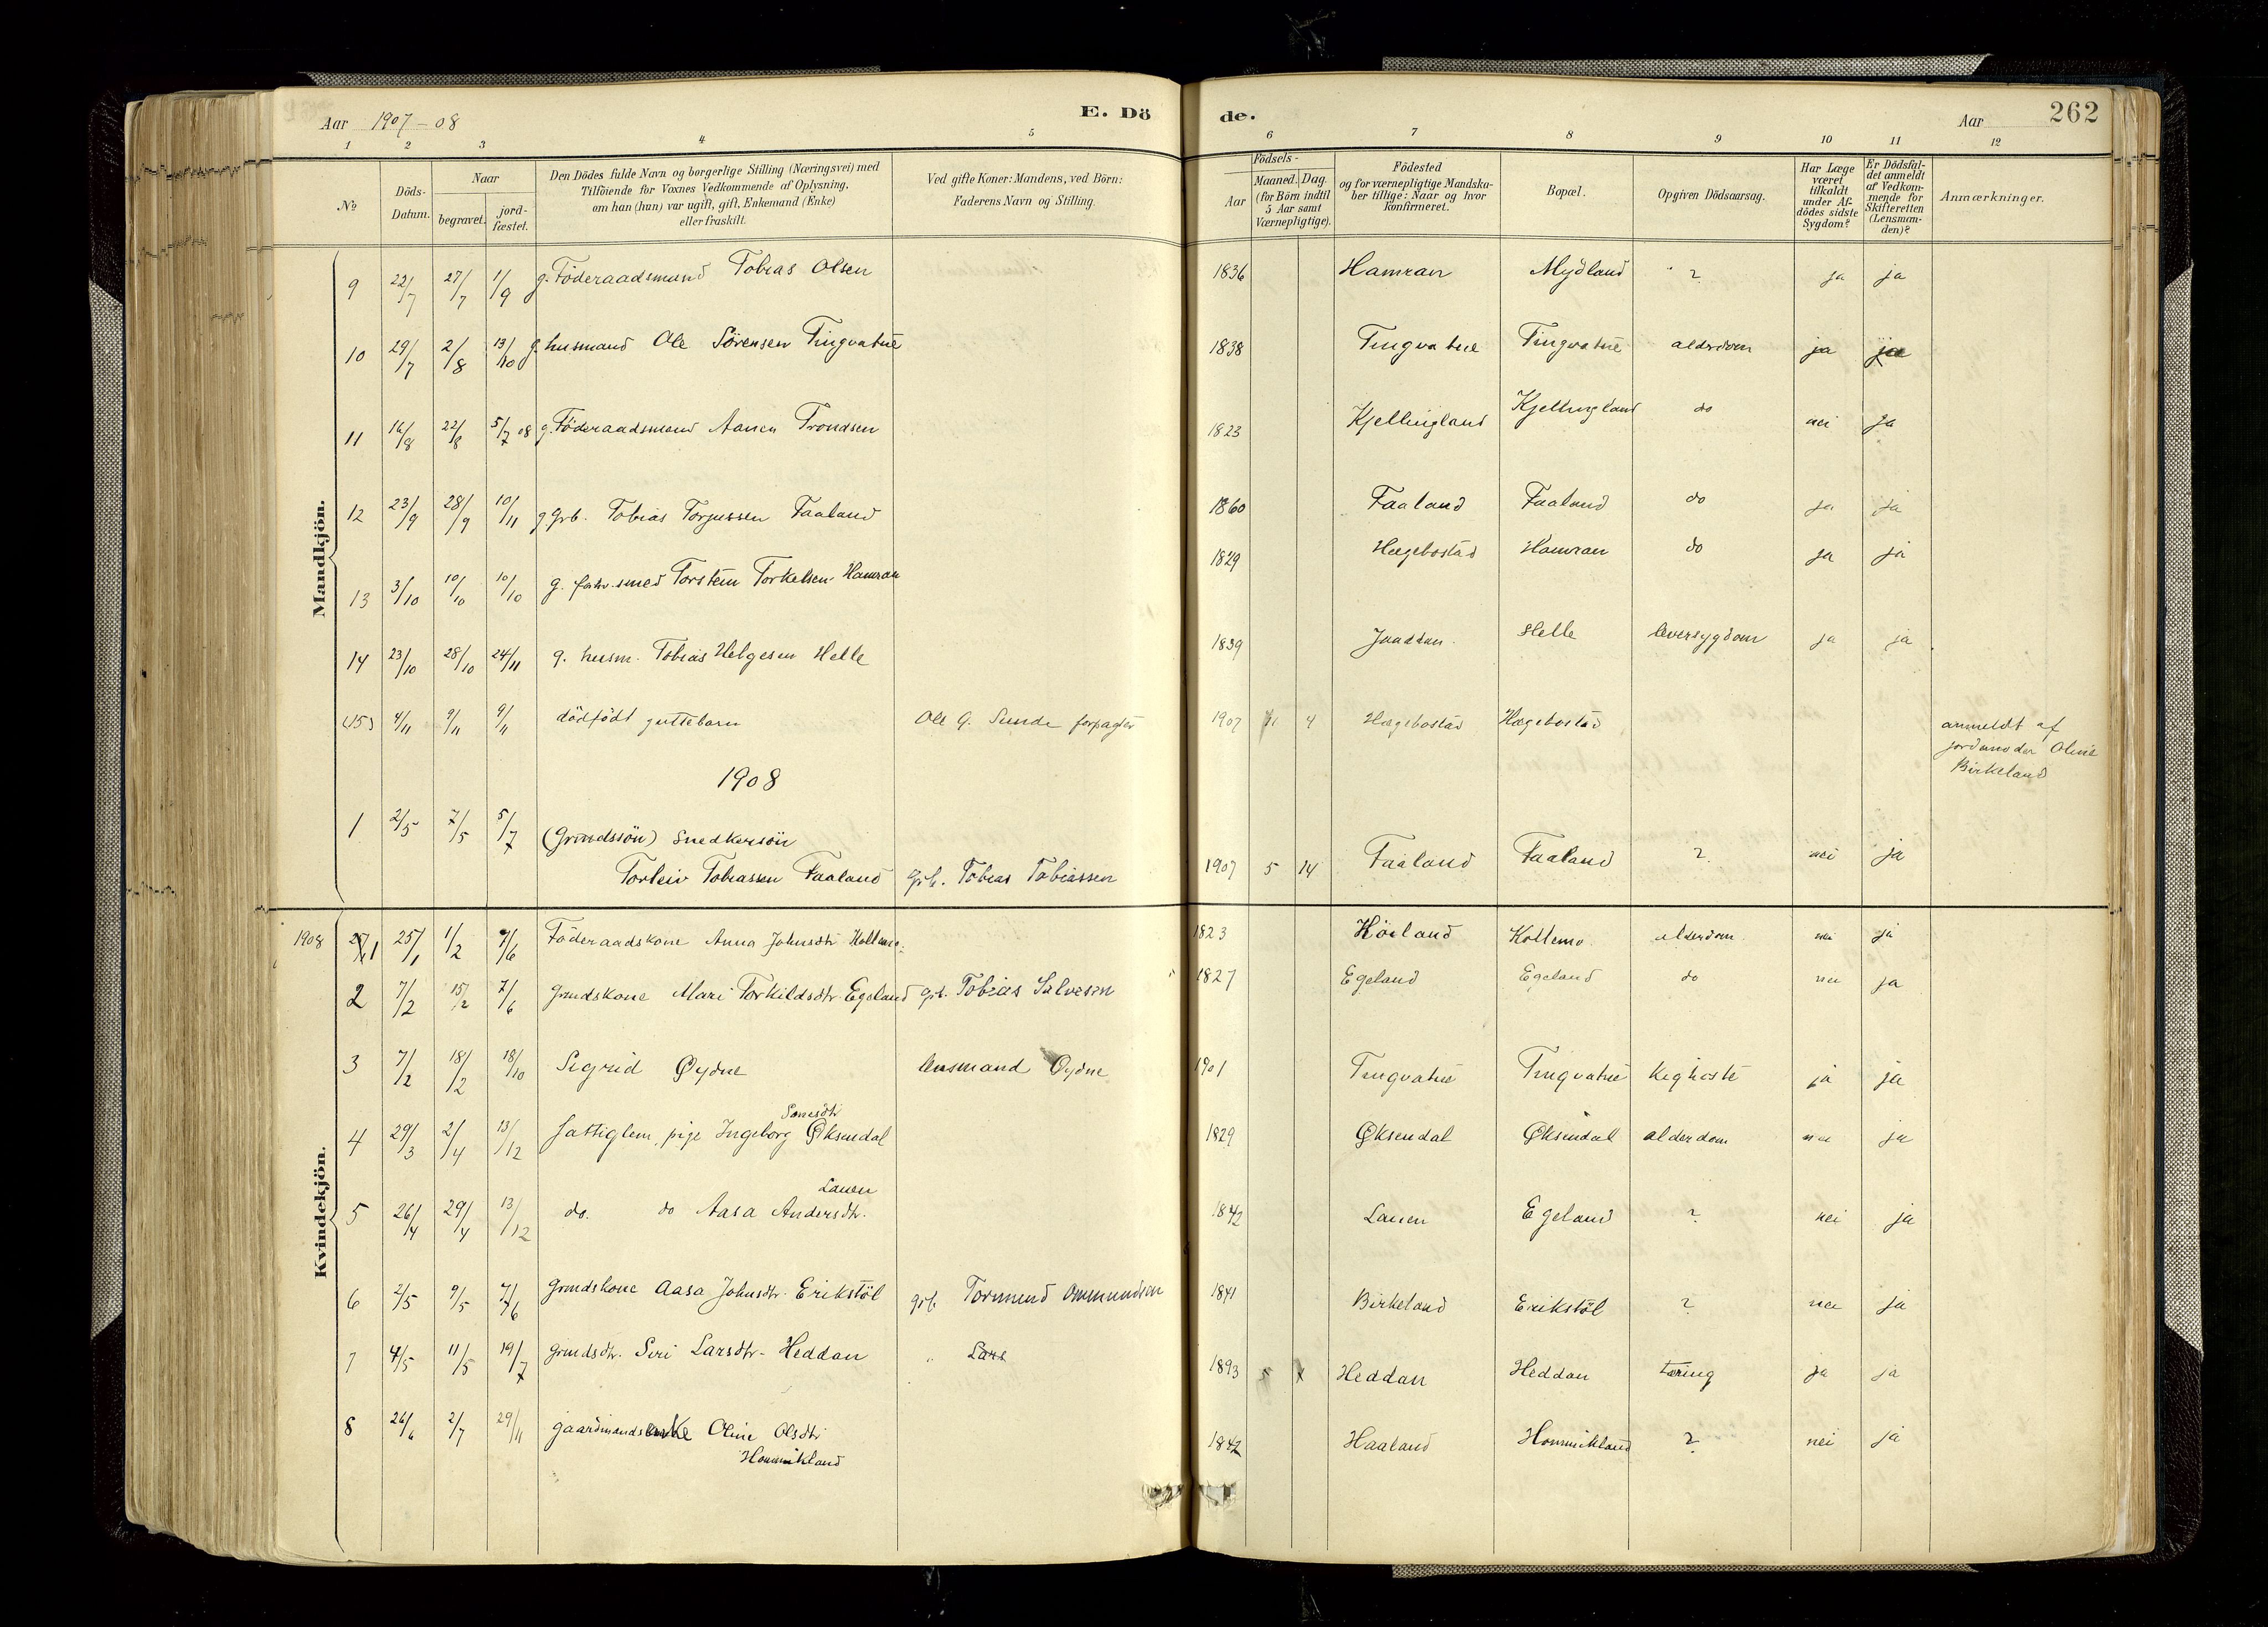 Aar 1907-08
E. Dö
de.
Aar
262
1 2 3 4 5 6 7 8 9 10 11 12
№
Döds-
Datum.
Naar
begravet.
jord-
fæstet.
Den Dödes fulde Navn og borgerlige Stilling (Næringsvei) med
Tilföiende for Voxnes Vedkommende af Oplysning,
om han (hun) var ugift, gift, Enkemand (Enke)
eller fraskilt.
Ved gifte Koner: Mandens, ved Börn:
Faderens Navn og Stilling.
Födsels-
Aar
Maaned. Dag
(for Börn indtil
5 Aar samt
Værnepligtige).
Födested
og for værnepligtige Mandska-
ber tillige: Naar og hvor
konfirmeret.
Bopæl.
Opgiven Dödsaarsag.
Har Læge
været
tilkaldt
under Af-
dödes sidste
Sygdom?
Er Dödsfal-
det anmeldt
af Vedkom-
mende for
Skifteretten
(Lensman-
den)?
Anmærkninger.
Mandkjön.
9 22/7 27/7 1/9 g. Föderaadsmand Tobias Olsen 1836 Hamran Mydland ? ja ja
10 29/7 2/8 13/10 g. husmand Ole Sörensen Tingvatne 1838 Tingvatne Tingvatne alderdom ja ja
11 16/8 22/8 5/7 08 g. Föderaadsmand Aanen Trondsen 1823 Kjellingland Kjellingland do nei ja
12 23/9 28/9 10/11 g grb. Tobias Torjussen Faaland 1860 Faaland Faaland do ja ja
13 3/10 10/10 10/10 g. smed Torstein Torkelsen Hamran 1829 Hægebostad Hamran do ja ja
14 23/10 28/10 24/11 g. husm. Tobias Helgesen Helle 1839 Helle leversygdom ja ja
(15) 4/11 9/11 9/11 dödfödt guttebarn Ole G. Sunde forpagter 1907 11 4 Hægebostad Hægebostad anmeldt af
jordmoder Oline
Birkeland
1908
1 2/5 7/5 5/7 (Grmdssön) Snedkersön
Torleiv Tobiassen Faaland grb. Tobias Tobiassen 1907 5 14 Faaland Faaland ? nei ja
Kvindekjön.
1908 1 25/1 1/2 7/6 Föderaadskone Anna Johnsdtr Kollemo 1823 Köiland Kollemo alderdom nei ja
2 7/2 15/2 7/6 Grmdskone Mari Torkildsdtr. Egeland grb. Tobias Salvesen 1827 Egeland Egeland do nei ja
3 7/2 18/2 18/10 Sigrid Øydne lensmand Øydne 1901 Tingvatne Tingvatne Kighoste ja ja
Sanesdtr
4 29/3 2/4 13/12 fattiglem, pige Ingeborg Øksendal 1829 Øksendal Øksendal alderdom nei ja
Lauen
5 26/4 29/4 13/12 do. do Aasa Andersdtr. 1842 Lauen Egeland ? nei ja
6 2/5 9/5 7/6 Grmdskone Aasa Johnsdtr. Erikstöl grb. Tormund Ommundsen 1841 Birkeland Erikstöl ? nei ja
7 4/5 11/5 19/7 grmdsdtr. Siri Larsdtr. Heddan " Lars 1893 5 Heddan Heddan tæring ja ja
8 26/6 2/7 29/11 gaardmandsenke Oline Olsdtr
Hommikland 1842 Haaland Hommikland ? nei ja